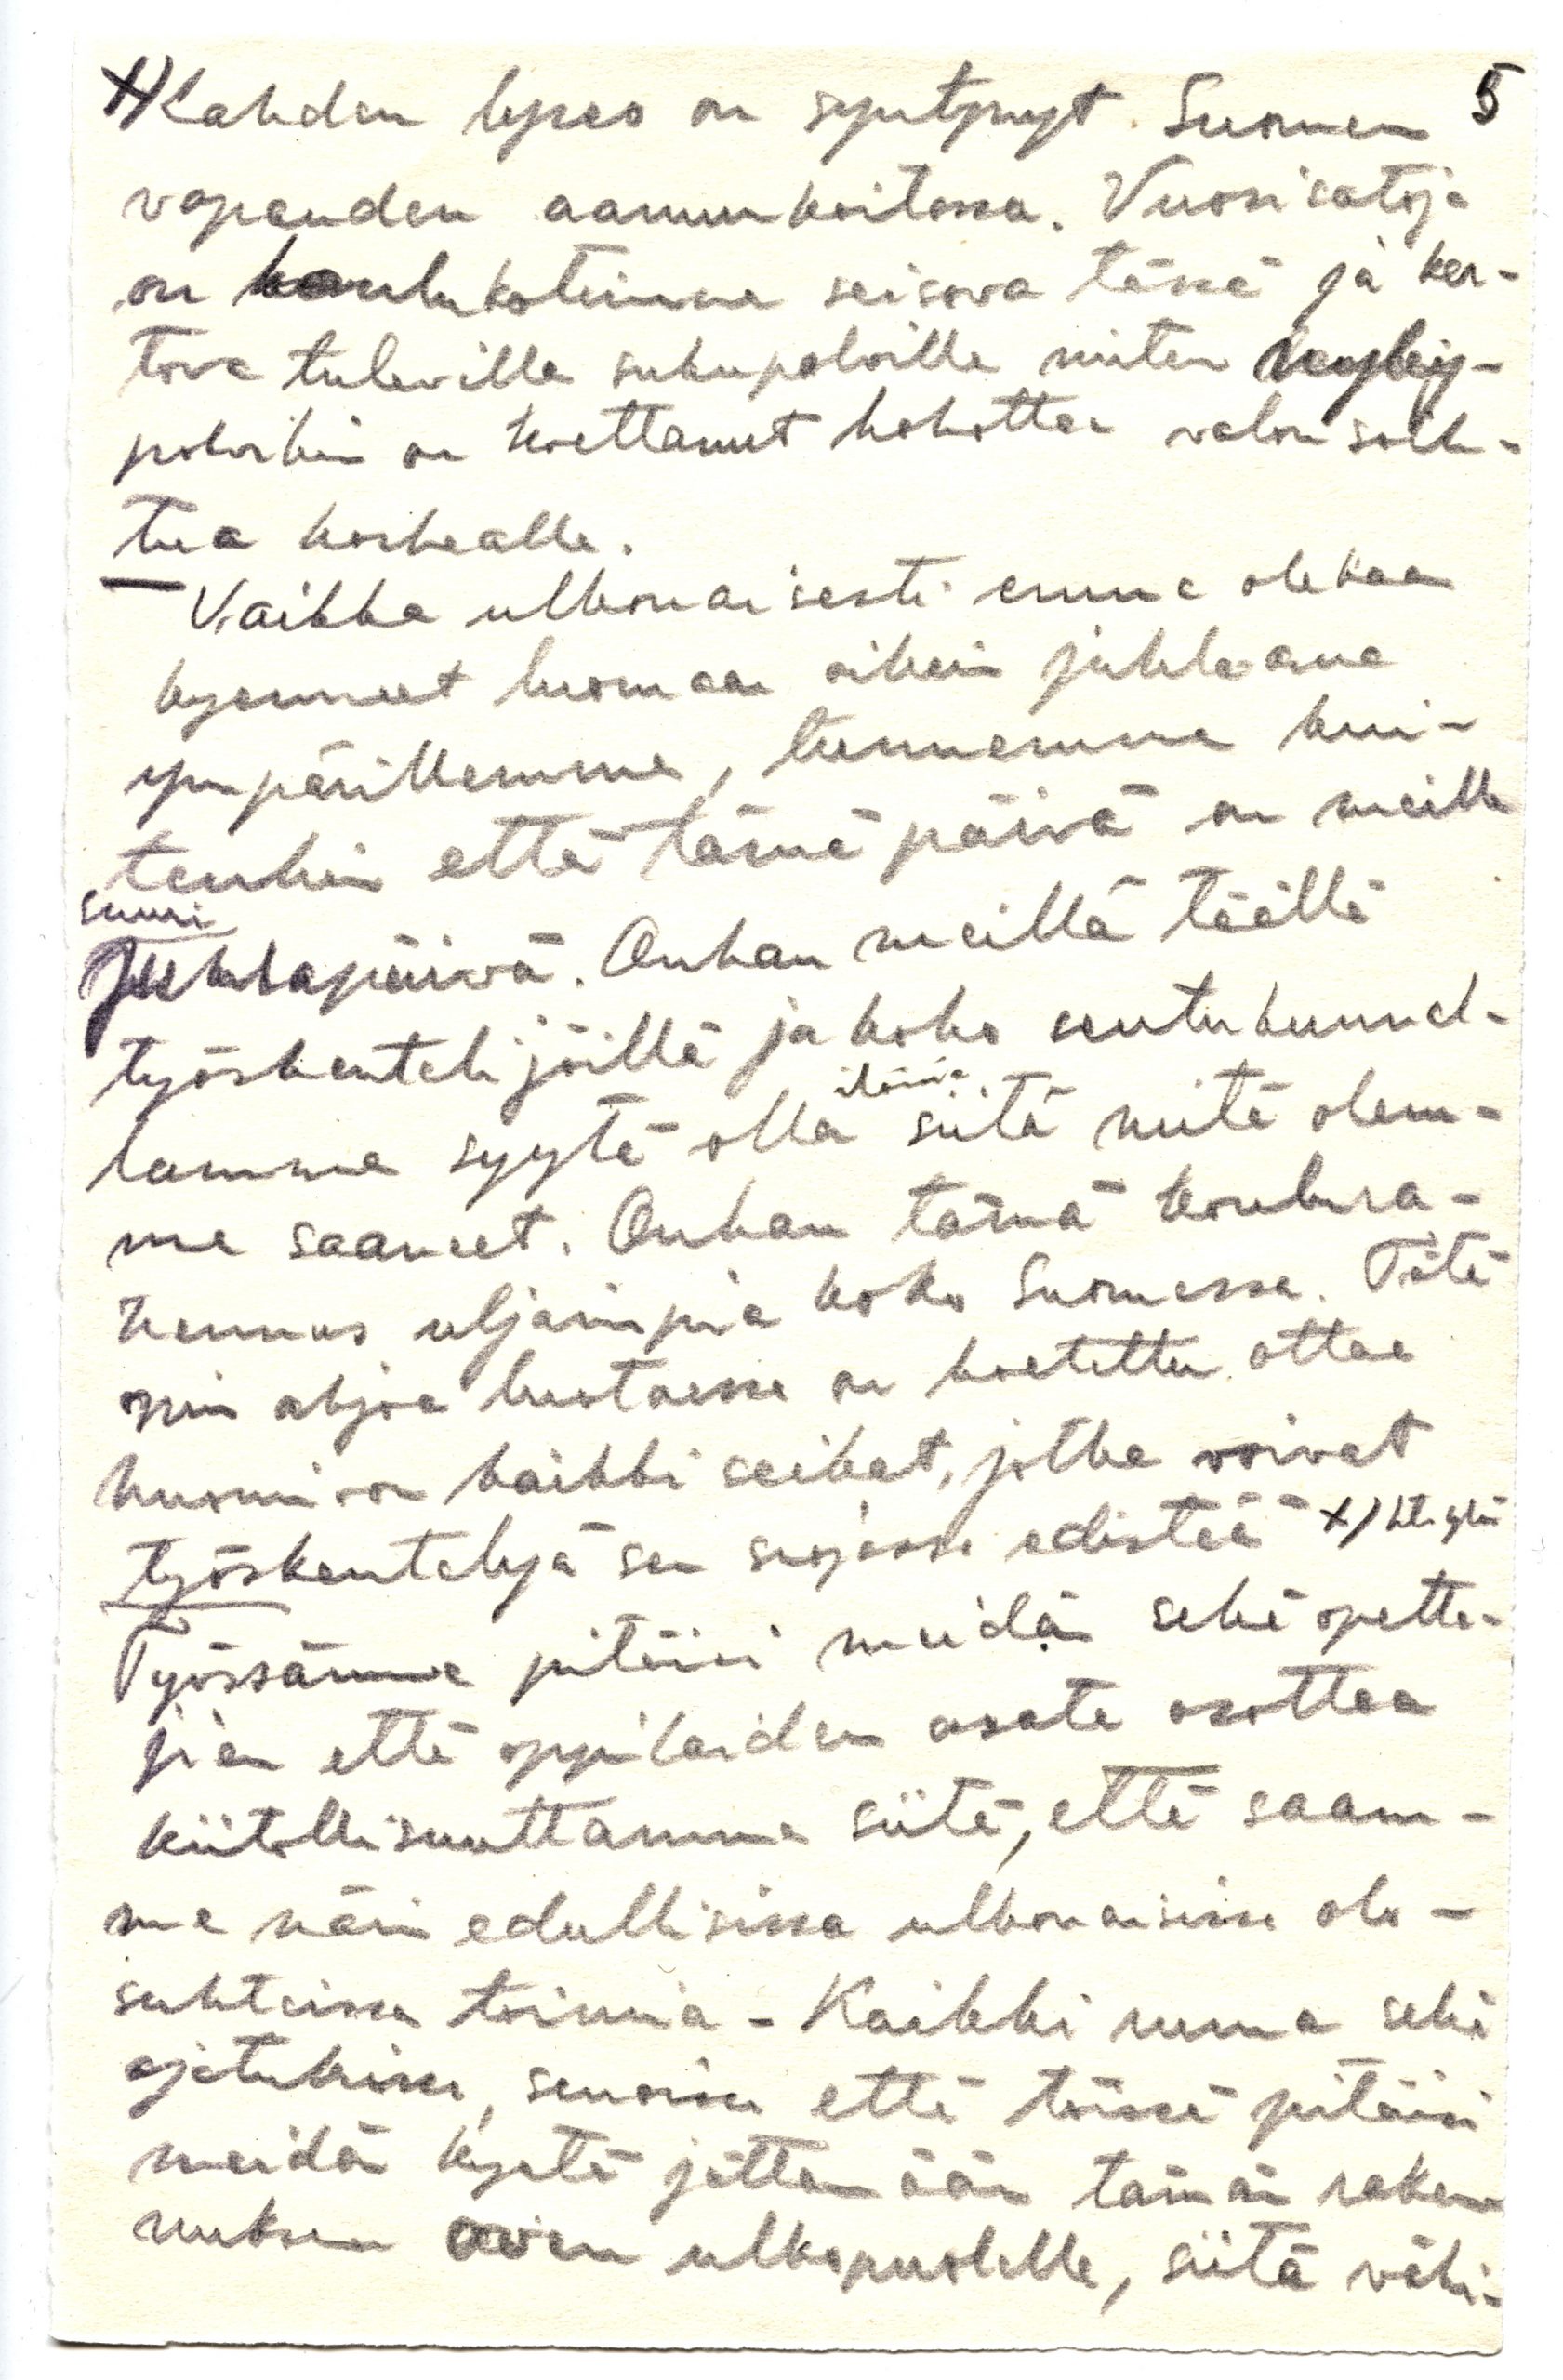 x) Kahden lapso on syntynyt Suomen 5
vapauden aamunkoitossa. Vuosisatoja
on koulukotimme seisova tässä ja ker-
tova tuleville sukupolville miten nyky-
polvikin on koettanut kohottaa valon soih-
tua korkealle.
Vaikka ulkonaisesti emme olekaan
kyenneet luomaan oikein juhlaana
ympärillemme, tunnemme kui-
tenkin että tämä päivä on meille
suuri
juhlapäivä. Onhan meillä täällä
työskentelijöillä ja koko seutukunnal-
iloisia
lamme syytä olla siitä mitä olem-
me saaneet. Onhan tämä koulura-
kennus uljaimpia koko Suomessa. Tätä
opin ahjoa luotaessa on koetettu ottaa
huomioon kaikki seikat, jotka voivat
työskentelyä sen suojassa edistää x)
Työssämme pitäisi meidän sekä opetta-
jien että oppilaiden osata osottaa
kiitollisuuttamme siitä, että saam-
me näin edullisissa ulkonaisissa olo-
suhteissa toimia - Kaikki ruma sekä
ajatuksissa, sanoissa että töissä pitäisi
meidän kyetä jättämään tämän raken
nuksen ovien ulkopuolelle, siitä väki-